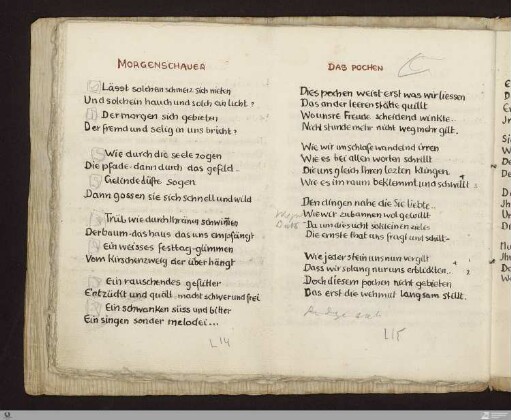 MORGENSCHAUER
Lässt solch ein schmerz sich nieten
Und solch ein hauch und solch ein licht?
Der morgen sich gebieten
Der fremd und selig in uns bricht?
Wie durch die seele zogen
Die pfade · dann durch das gefild..
Gelinde düfte sogen
Dann gossen sie sich schnell und wild
Trüb wie durch thränen schwimmen
Der baum · das haus das uns empfängt
Ein weisses festtag-glimmen
Vom kirschenzweig der überhängt
Ein rauschendes geflitter
Entzückt und quält · macht schwer und frei
Ein schwanken süss und bitter
Ein singen sonder melodei...
L 14
DAS POCHEN
Dies pochen weist erst was wir liessen
Das an der leeren stätte quillt
Wo unsre freude scheidend winkte..
Nicht stunde mehr nicht weg mehr gilt.
Wie wir im schlafe wandelnd irren
Wie es bei allen worten schrillt
Die uns gleich ihren lezten klingen
Wie es im raum beklemmt und schwillt
Den dingen nahe die Sie liebte..
Wie wir zu bannen wol gewillt
Da uns dies ucht solch einen zieles
Die ernste that uns fragt und schilt-
Wie jeder stein uns nun vergilt
Dass wir so lang nur uns erblickten..
Doch diesem pochen nicht gebieten
Das erst die wehmut langsam stillt.
L 15